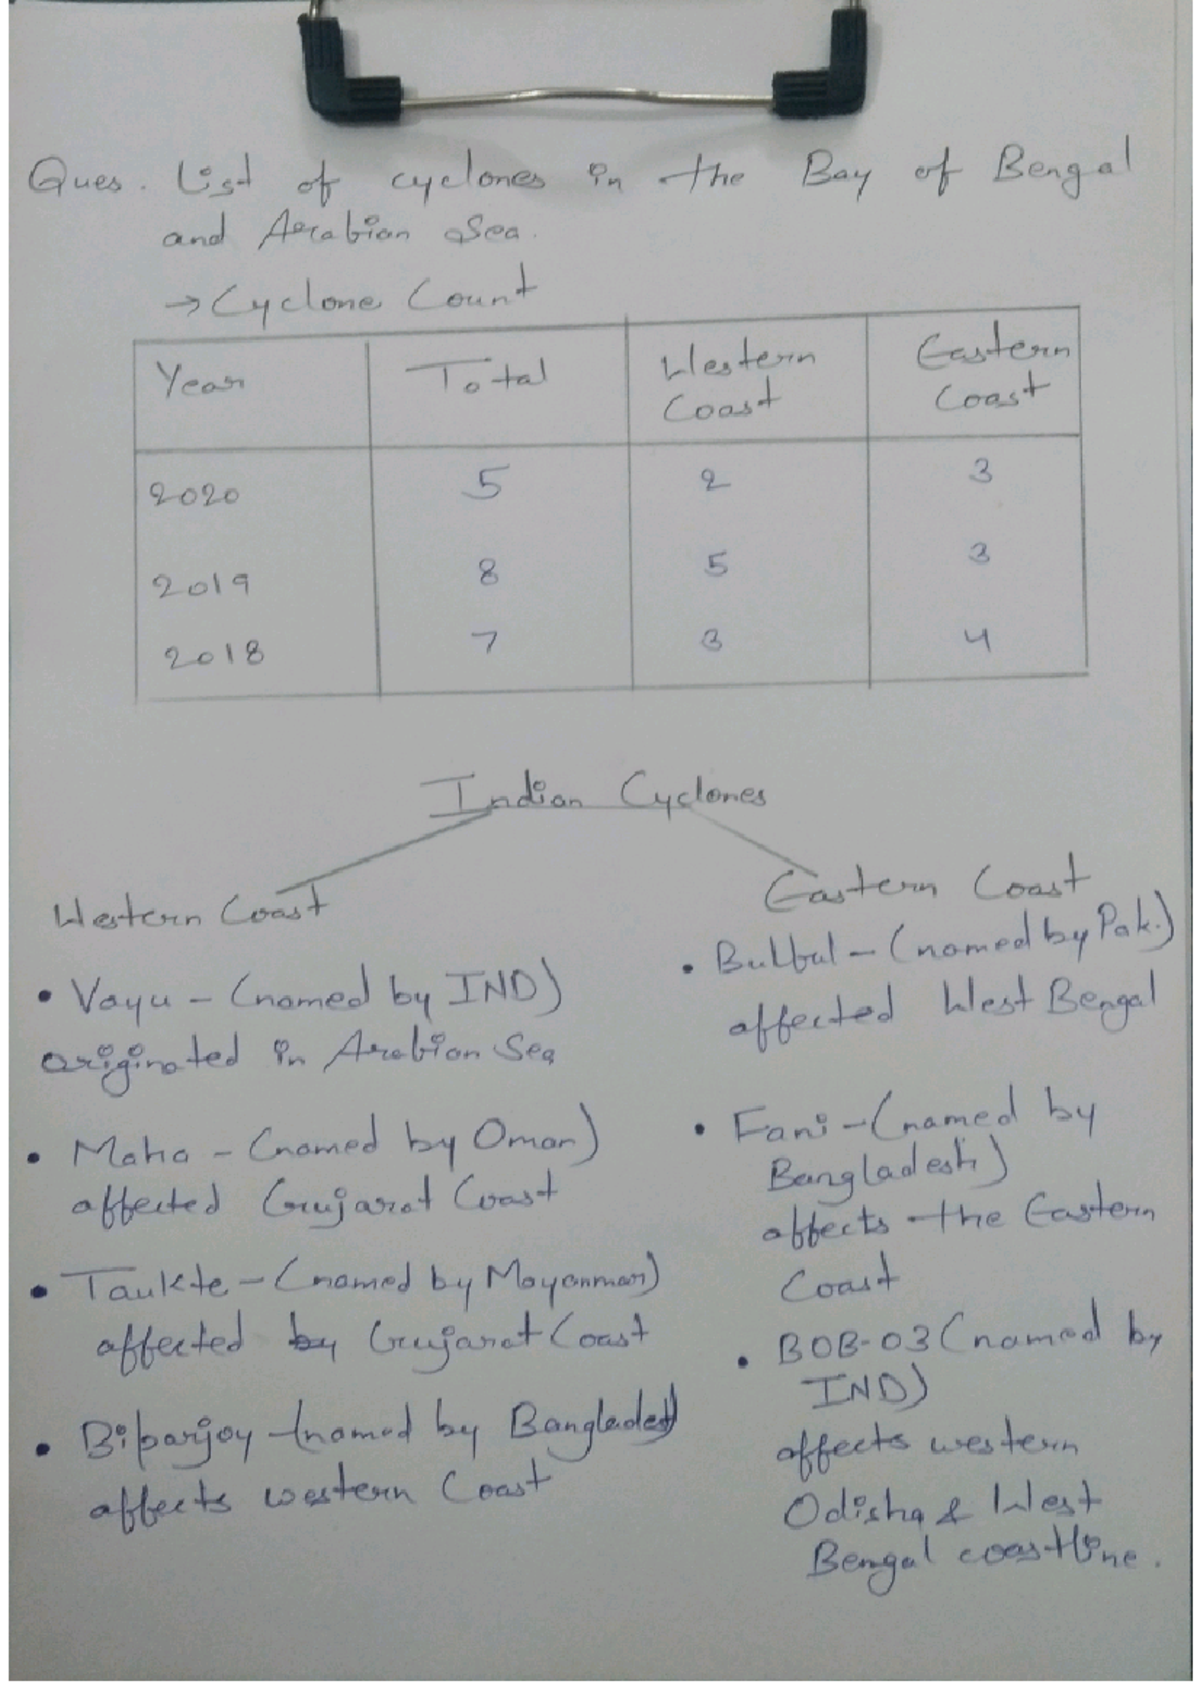 Ques. List of cyclones in the Bay of Bengal
and Arabian Sea.
→ Cyclone Count
Year Total Western Coast Eastern Coast
2020 5 2 3
2019 8 5 3
2018 7 3 4
Indian Cyclones
Western Coast
• Vayu - (named by IND)
originated in Arabian Sea
• Maha - (named by Oman)
affected Gujarat Coast
• Taukte - (named by Mayanmar)
affected by Gujarat Coast
• Biparjoy - (named by Bangladesh)
affects western Coast
Eastern Coast
• Bulbul - (named by Pak.)
affected West Bengal
• Fani - (named by
Bangladesh)
affects the Eastern
Coast
• BOB-03 (named by
IND)
affects western
Odisha & West
Bengal coastline.